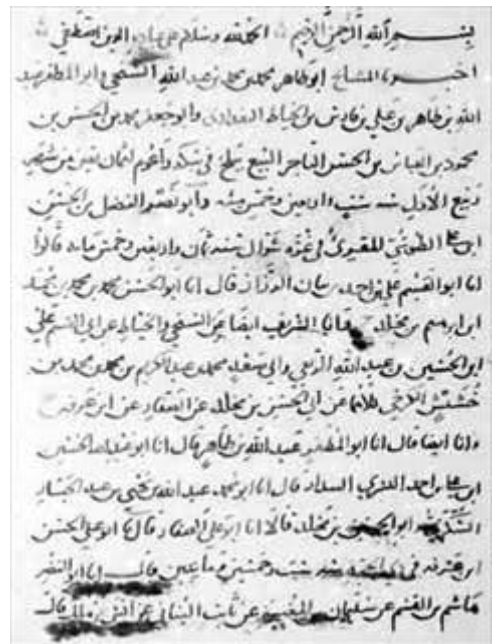 بسم الله الرحمن الرحيم الحمد لله وسلام على عباده الذين اصطفى
اخبرنا المشايخ ابو طاهر محمد بن محمد بن عبد الله السنجي وابو المظفر عبد
الله بن طاهر بن علي بن فارس الخياط البغدادي وابو جعفر محمد بن الحسن بن
محمود بن العباس بن الحسن التاجر ببلخ في سلخ
ربيع الاول سنه ست واربعين وخمس مئه وابو الفضل بن الحسن
ابن علي الطوسي المقري في غره شوال سنه ثمان واربعين وخمس مائه قالوا
انا ابو القسم علي بن احمد بن بيان الرزاز قال انا ابو الحسن محمد بن محمد بن محمد
ابن ابرهيم بن مخلد وانا الشريف ايضا عن السنجي والخياط عن ابي القسم علي
ابن الحسين بن عبد الله الربعي وابي سعد محمد بن عبد الكريم بن محمد بن
خشيش الكرخي كلاهما عن ابي الحسن بن مخلد عن الصفار عن ابن عرفه
وانا ايضا قال انا ابو المظفر عبد الله بن طاهر قال انا ابو عبد الله الحسين
ابن علي بن احمد السلار قال انا ابو محمد عبد الله بن يحيى بن عبد الجبار
السكري وابو الحسن بن مخلد قالا انا ابو علي الصفار قال انا ابو علي الحسن
ابن عرفه في سنه ست وخمسين ومائتين قال انا ابو النضر
هاشم بن القسم عن سليمان بن المغيره عن ثابت البناني عن انس بن ملك قال